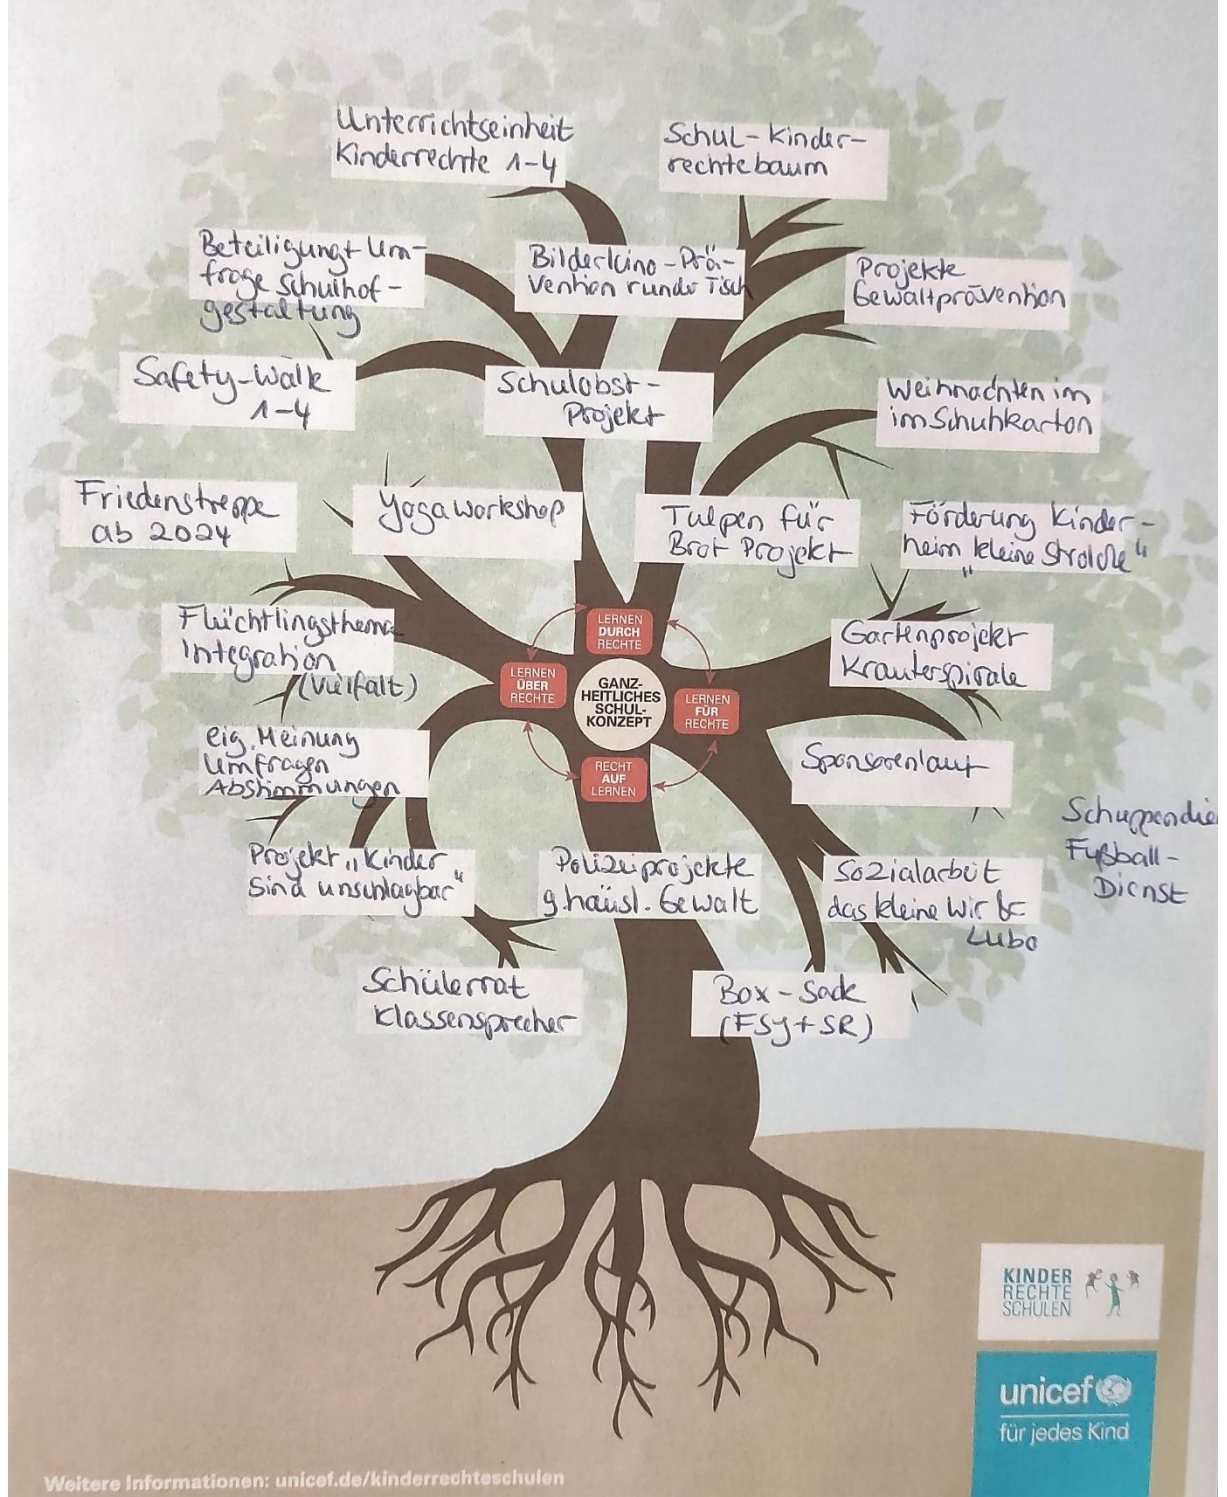 Unterrichtseinheit
Kinderrechte 1-4
Schul-Kinder-
rechtebaum
Beteiligung + Um-
frage Schulhof-
gestaltung
Bilderkino-Prä-
vention runder Tisch
Projekte
Gewaltprävention
Safety-Walk
1-4
Schulobst-
Projekt
Weihnachten im
im Schuhkarton
Friedenstreppe
ab 2024
Yogaworkshop
Tulpen für
Brot Projekt
Förderung Kinder-
heim „kleine Strolche"
Flüchtlingsthema
Integration
(Vielfalt)
LERNEN
DURCH
RECHTE
LERNEN
ÜBER
RECHTE
GANZ-
HEITLICHES
SCHUL-
KONZEPT
LERNEN
FÜR
RECHTE
RECHT
AUF
LERNEN
Gartenprojekt
Kräuterspirale
eig. Meinung
Umfragen
Abstimmungen
Sponsorenlauf
Projekt „Kinder
sind unschlagbar"
Polizeiprojekte
g. häusl. Gewalt
Sozialarbeit
das kleine Wir &
Lubo
Fußball-
Dienst
Schülerrat
Klassensprecher
Box-Sack
(FSJ+SR)
KINDER
RECHTE
SCHULEN
unicef
für jedes Kind
Weitere Informationen: unicef.de/kinderrechteschulen